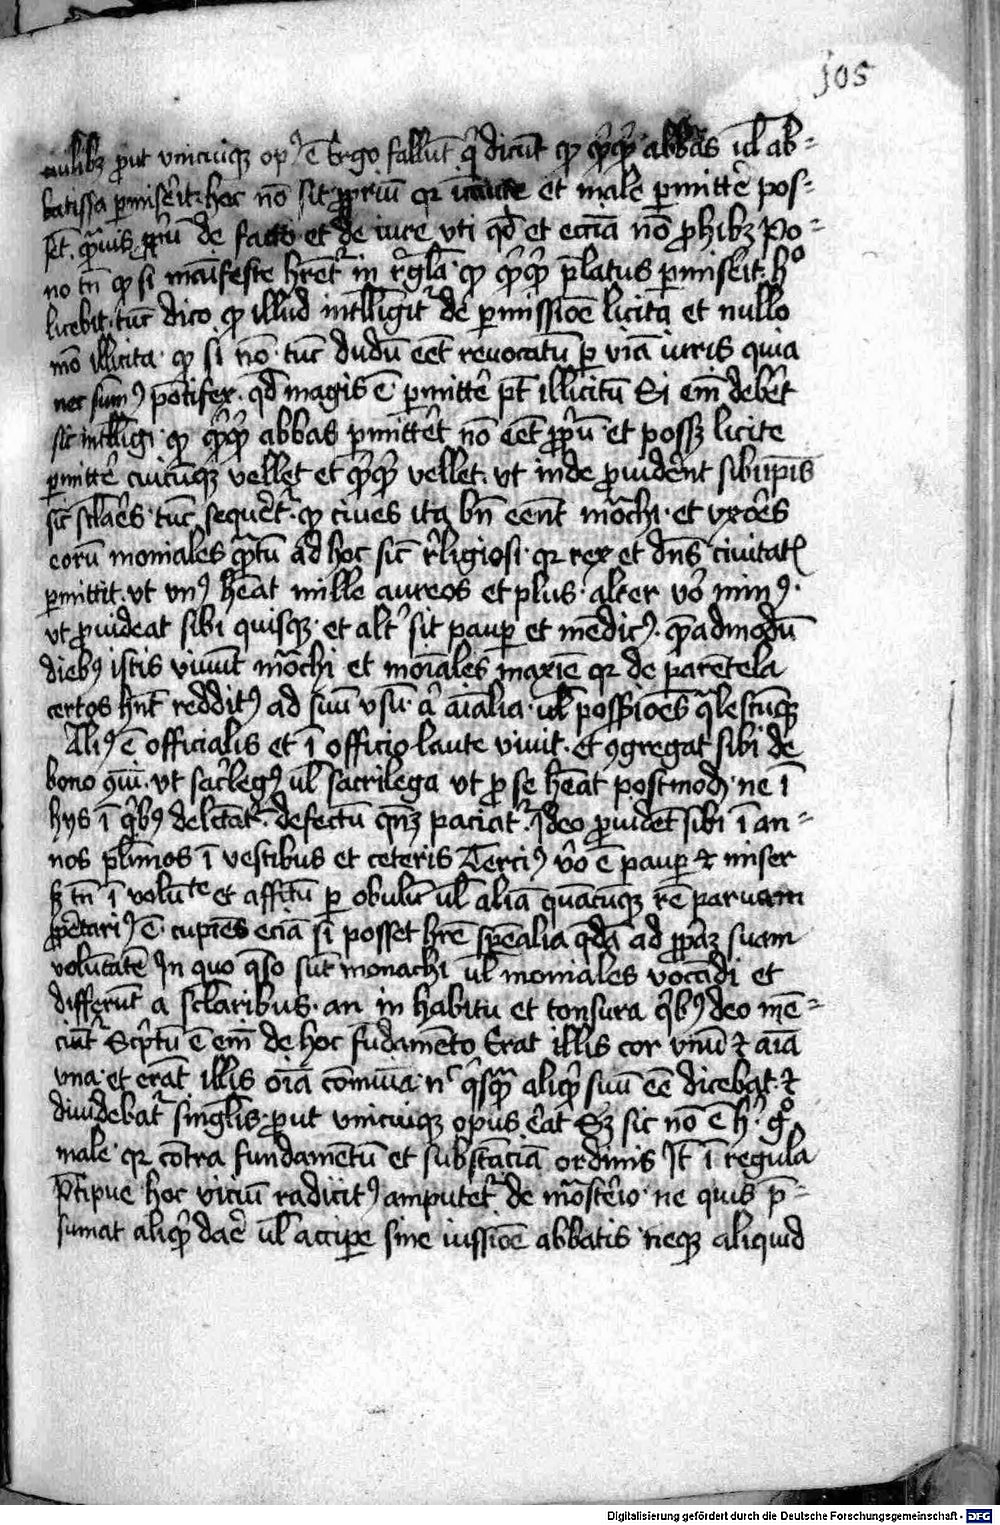 105
gulibꝫ ꝓut vnicuiqꝫ opꝰ ē Ergo fallūt q̇ dicūt ꝙ qͥcqͥd abbas vl̄ ab-
batissa ꝑmiserit hoc nō sit ꝓpriū qꝛ et male ꝑmittē̄ pos-
de facto et de iure vti qd̄ et eciā nō ꝓhibꝫ Po-
no tn̄ ꝙ si manifeste hr̄et in rēgla ꝙ qͥcqͥd p̄latus ꝑmiserit hͦ
licebit tūc dico ꝙ illud intelligit᷑ de ꝑmissiōe licita et nullo
mō illicita ꝙ si nō tūc dudū eēt reuocatū ꝑ viā iuris quia
nec sūmꝰ pōtifex qd̄ magis ē ꝑmittē̄ pt̄ illicitū Si em̄ debēt
sic intelligi ꝙ qͥcqͥd abbas ꝑmittēt nō eēt ꝓpͥū et possꝫ licite
ꝑmittē̄ cuicūqꝫ vellet et qͥcqͥd vellet vt inde ꝓuidēnt sibiip̄is
sic sclāēs tūc sequēt᷑ ꝙ ciues ita bn̄ eēnt mōchi et vxōēs
eorū moniales qͣtū ad hoc sic̄ rēligiosi qꝛ rex et dn̄s ciuitatꝭ
ꝑmittit vt vnꝰ hēat mille aureos et plus alter vͦ minꝰ
vt ꝓuideat sibi quisqꝫ et altͥ sit pauꝑ et mēdicꝰ qͣadmodū
diebꝰ istis viuūt mōchi et moiāles maxīe qꝛ de parētela
certos hn̄t redditꝰ ad suū vsū aͥ aīalia vl̄ possessiōēs qͣlescūqꝫ
Aliꝰ ē officialis et ī officio laute viuit Et ꝯgregat sibi de
bono qͥui vt sacͥlegꝰ vl̄ sacrilega vt ꝓ se hēat postmodꝫ ne ī
hijs ī qͥbꝰ delc̄at᷑ defectū qn̄qꝫ paciat᷑ Ideo ꝓuidet sibi ī an-
nos plīmos ī vestibus et ceteris Terciꝰ vͦ ē pauꝑ ⁊ miser
sꝫ tn̄ ī volūte et affectū ꝑ obulū vl̄ aliā quācūqꝫ rē paruam
ꝓpͥetariꝰ ē cupiēs eciā si posset hr̄e spēalia qͣdā ad ꝓpͥaꝫ suam
volūtatē In quo qͣso sūt monachi vl̄ moniales vocādi et
differūt a sclāribus an in habitu et tonsura qͥbꝰ deo mē-
ciūt᷑ Scͥptū ē em̄ de hoc fūdamēto Erat illis cor vnū ⁊ aīa
vna et erāt illis oīa cōmūia nͨ qͥsqͣ aliqͥd suū eē dicebat ⁊
diuidebat᷑ singl̄is ꝓut vnicuiqꝫ opus eͥat Sꝫ sic nō ē hͥ gͦ
male qꝛ cōtra fundamētū et substāciā ordinis It̄ ī regula
Pͨcipue hoc viciū radicitꝰ amputet᷑ de mōstēio ne quis p̄-
sumat aliqͥd daē vl̄ accipe sine iussiōe abbatis neqꝫ aliquid
Digitalisierung gefördert durch die Deutsche Forschungsgemeinschaft - DFG